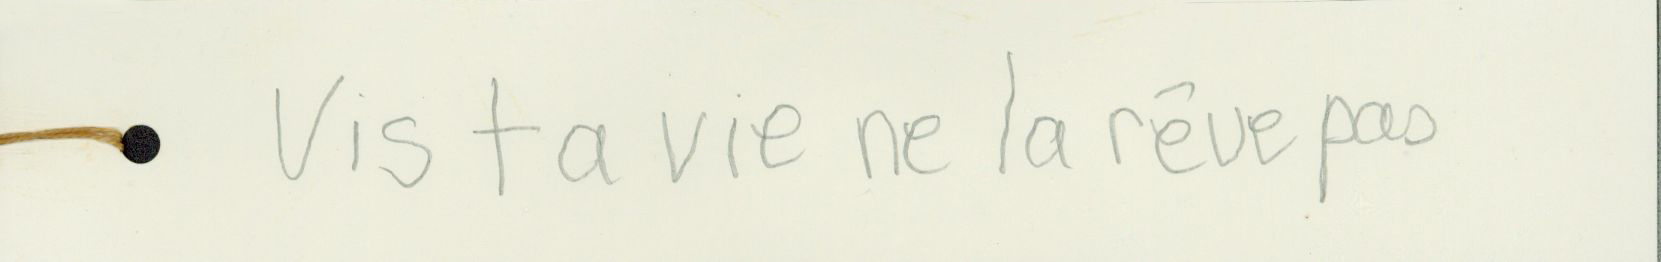 Vis ta vie ne la rêve pas